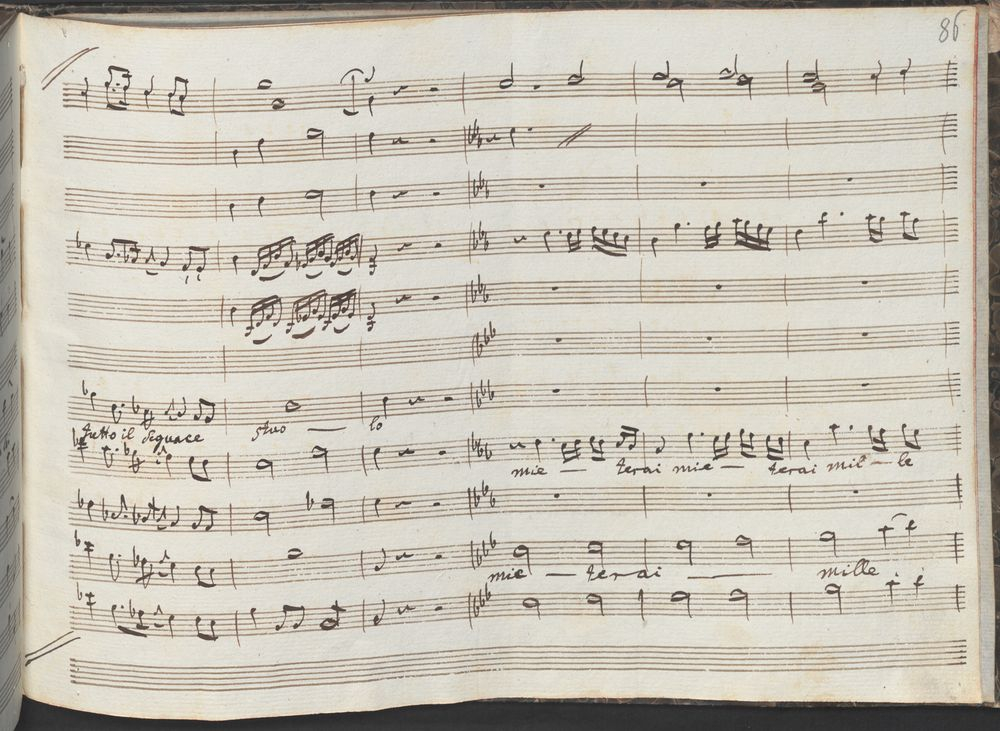 86
tutto il seguace stuo — lo
mie — terai mie — terai mil — le
mie — terai — mille